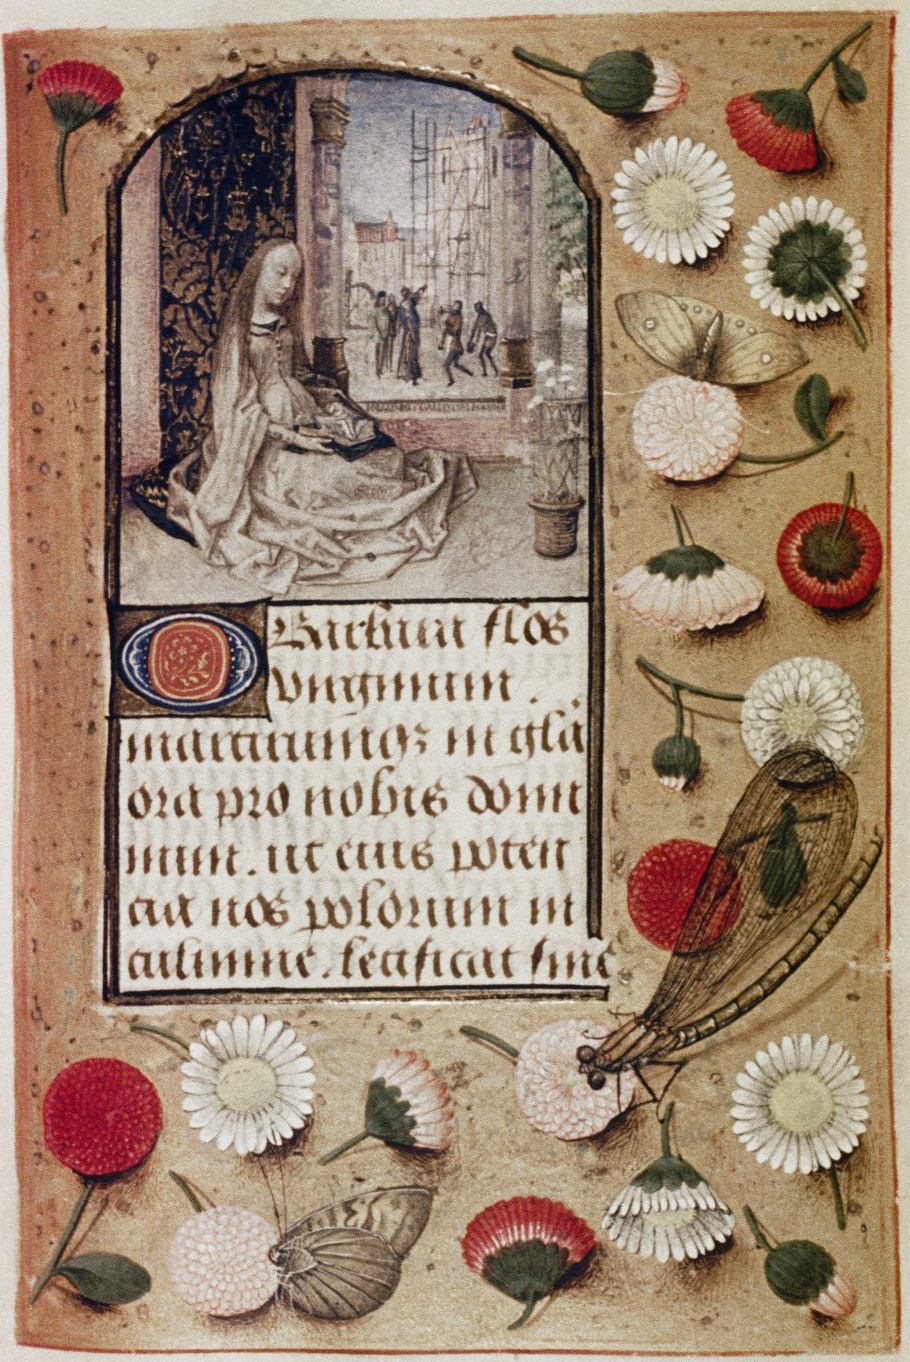 O Barbara flos
virginum .
martirumqꝫ in gl̃a
ora pro nobis domi
num . ut eius poten
cia nos polorum in
culmine . letificat sine